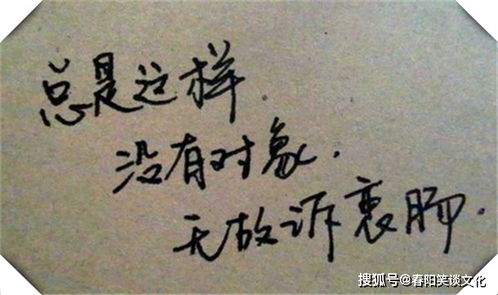 总是这样.
没有对象.
无故诉衷肠.
搜狐号@春阳笑谈文化